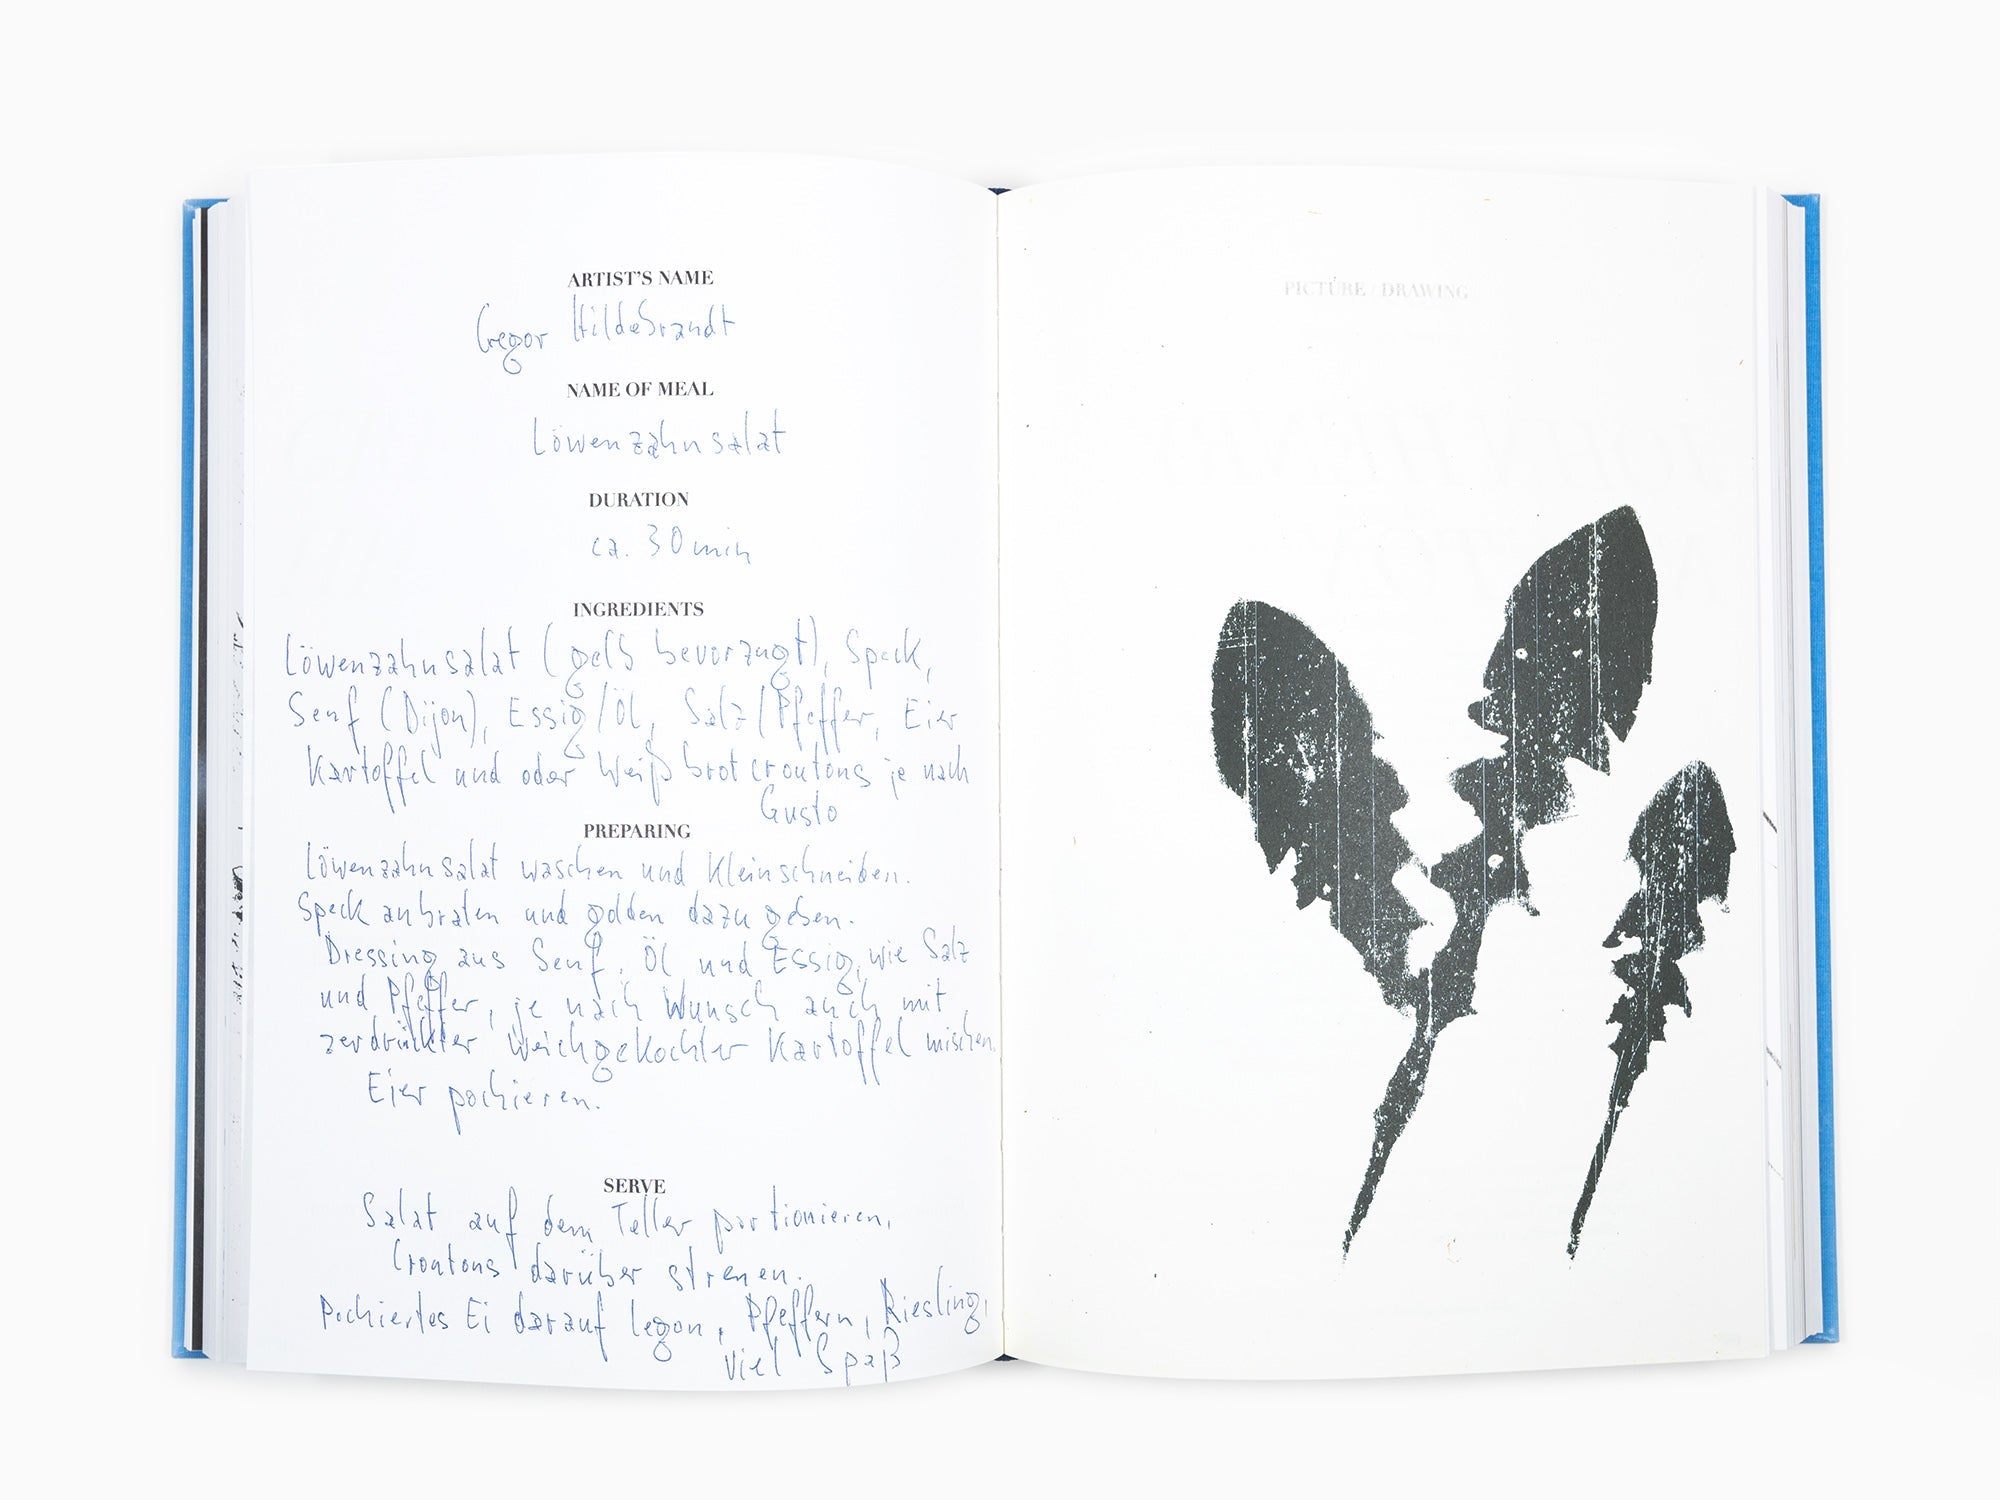 ARTIST'S NAME
Gregor Hildebrandt
NAME OF MEAL
Löwenzahnsalat
DURATION
ca. 30 min
INGREDIENTS
Löwenzahnsalat (gelb bevorzugt), Speck,
Senf (Dijon), Essig/Öl, Salz/Pfeffer, Eier
Kartoffel und oder Weißbrotcroutons je nach
Gusto
PREPARING
Löwenzahnsalat waschen und Kleinschneiden.
Speck anbraten und golden dazu geben.
Dressing aus Senf, Öl und Essig, wie Salz
und Pfeffer, je nach Wunsch auch mit
zerdrückter weichgekochter Kartoffel mischen.
Eier pochieren.
SERVE
Salat auf dem Teller portionieren,
Croutons darüber streuen.
Pochiertes Ei darauf legen, Pfeffern, Riesling,
viel Spaß
PICTURE / DRAWING